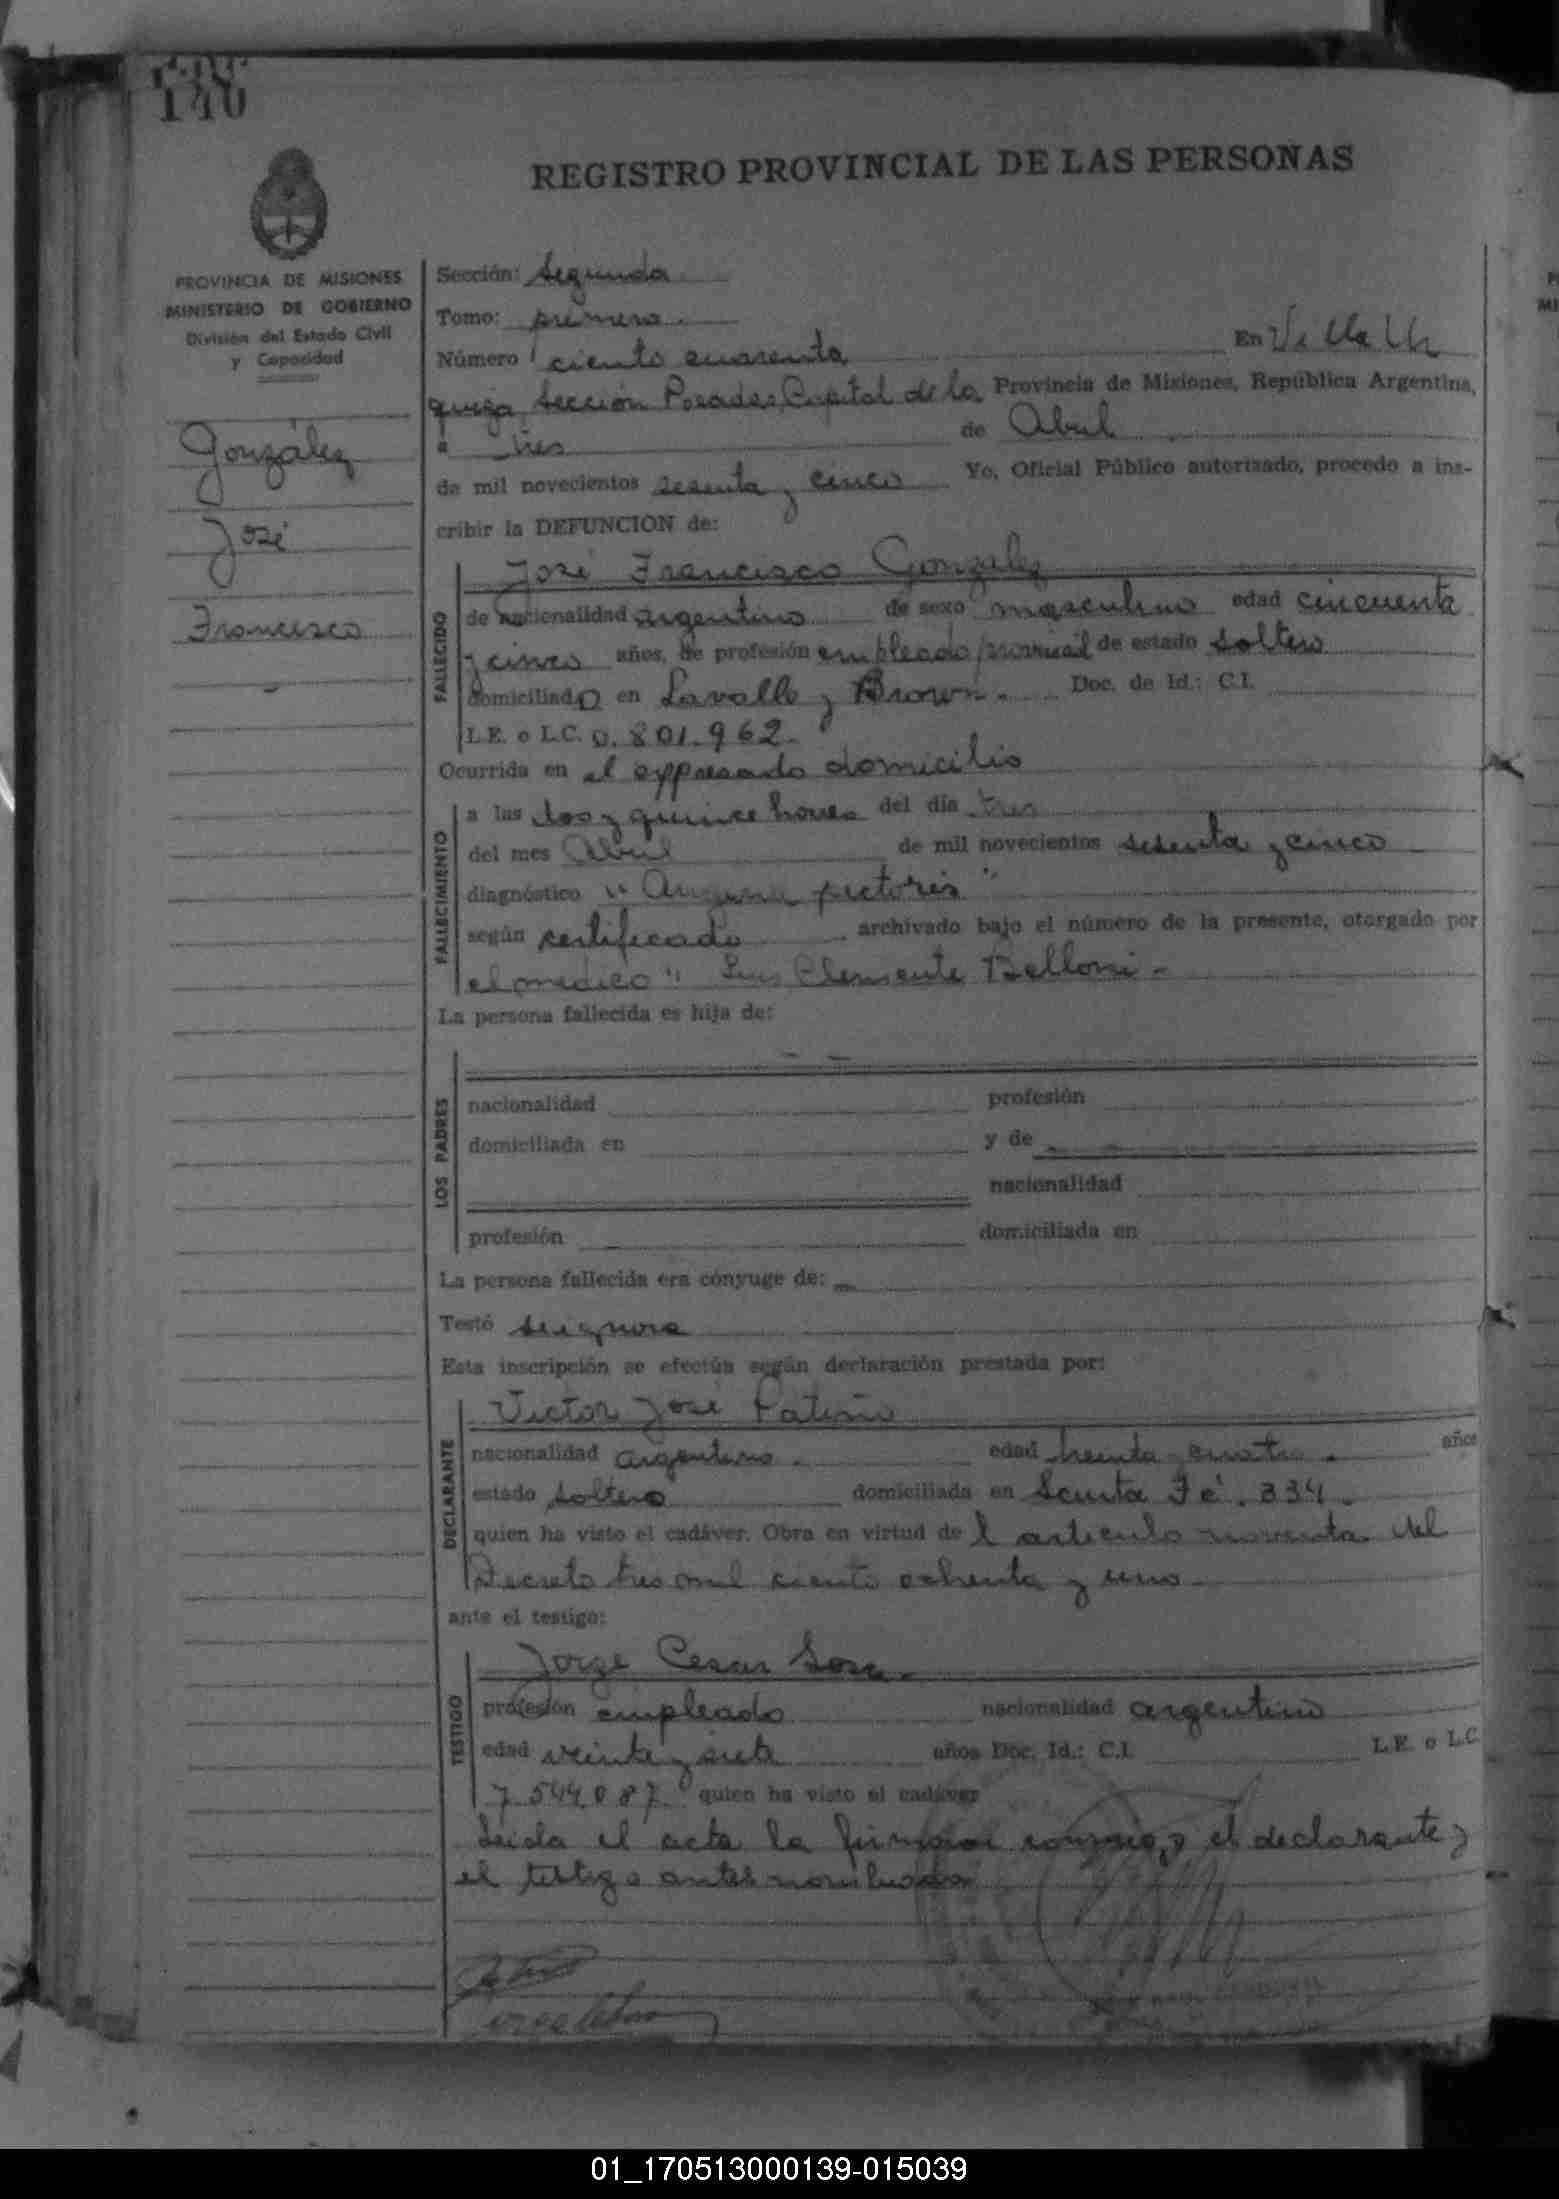 140
REGISTRO PROVINCIAL DE LAS PERSONAS
PROVINCIA DE MISIONES
MINISTERIO DE GOBIERNO
División del Estado Civil
y Capacidad
González
José
Francisco
Sección: Segunda
Tomo: primero.
Número ciento cuarenta En Villa Ur
quiza, Sección Posadas, Capital de la Provincia de Misiones, República Argentina,
a tres de Abril
de mil novecientos sesenta y cinco Yo, Oficial Público autorizado, procedo a ins-
cribir la DEFUNCION de:
FALLECIDO
José Francisco González
de nacionalidad argentino de sexo masculino edad cincuenta
y cinco años, de profesión empleado provincial de estado soltero
domiciliado en Lavalle y Brown. Doc. de Id.: C.I.
L.E. o L.C. 0.801.962.
Ocurrida en el expresado domicilio
FALLECIMIENTO
a las dos y quince horas del día tres
del mes Abril de mil novecientos sesenta y cinco
diagnóstico "Angina pectoris"
según certificado archivado bajo el número de la presente, otorgado por
el medico Luis Clemente Belloni -
La persona fallecida es hija de:
LOS PADRES
nacionalidad profesión
domiciliada en y de
nacionalidad
profesión domiciliada en
La persona fallecida era cónyuge de:
Testó se ignora
Esta inscripción se efectúa según declaración prestada por:
DECLARANTE
Victor José Patiño
nacionalidad argentino. edad treinta y cuatro. años
estado soltero domiciliada en Santa Fé. 334.
quien ha visto el cadáver. Obra en virtud de l articulo noventa del
Decreto tres mil ciento ochenta y uno
ante el testigo:
TESTIGO
Jorge Cesar Sosa.
profesión empleado nacionalidad argentino
edad veinte y siete años Doc. Id.: C.I. L.E. o L.C.
7.544.087. quien ha visto el cadáver
Leida el acta la firman conmigo, el declarante y
el testigo antes nombrado
01_170513000139-015039